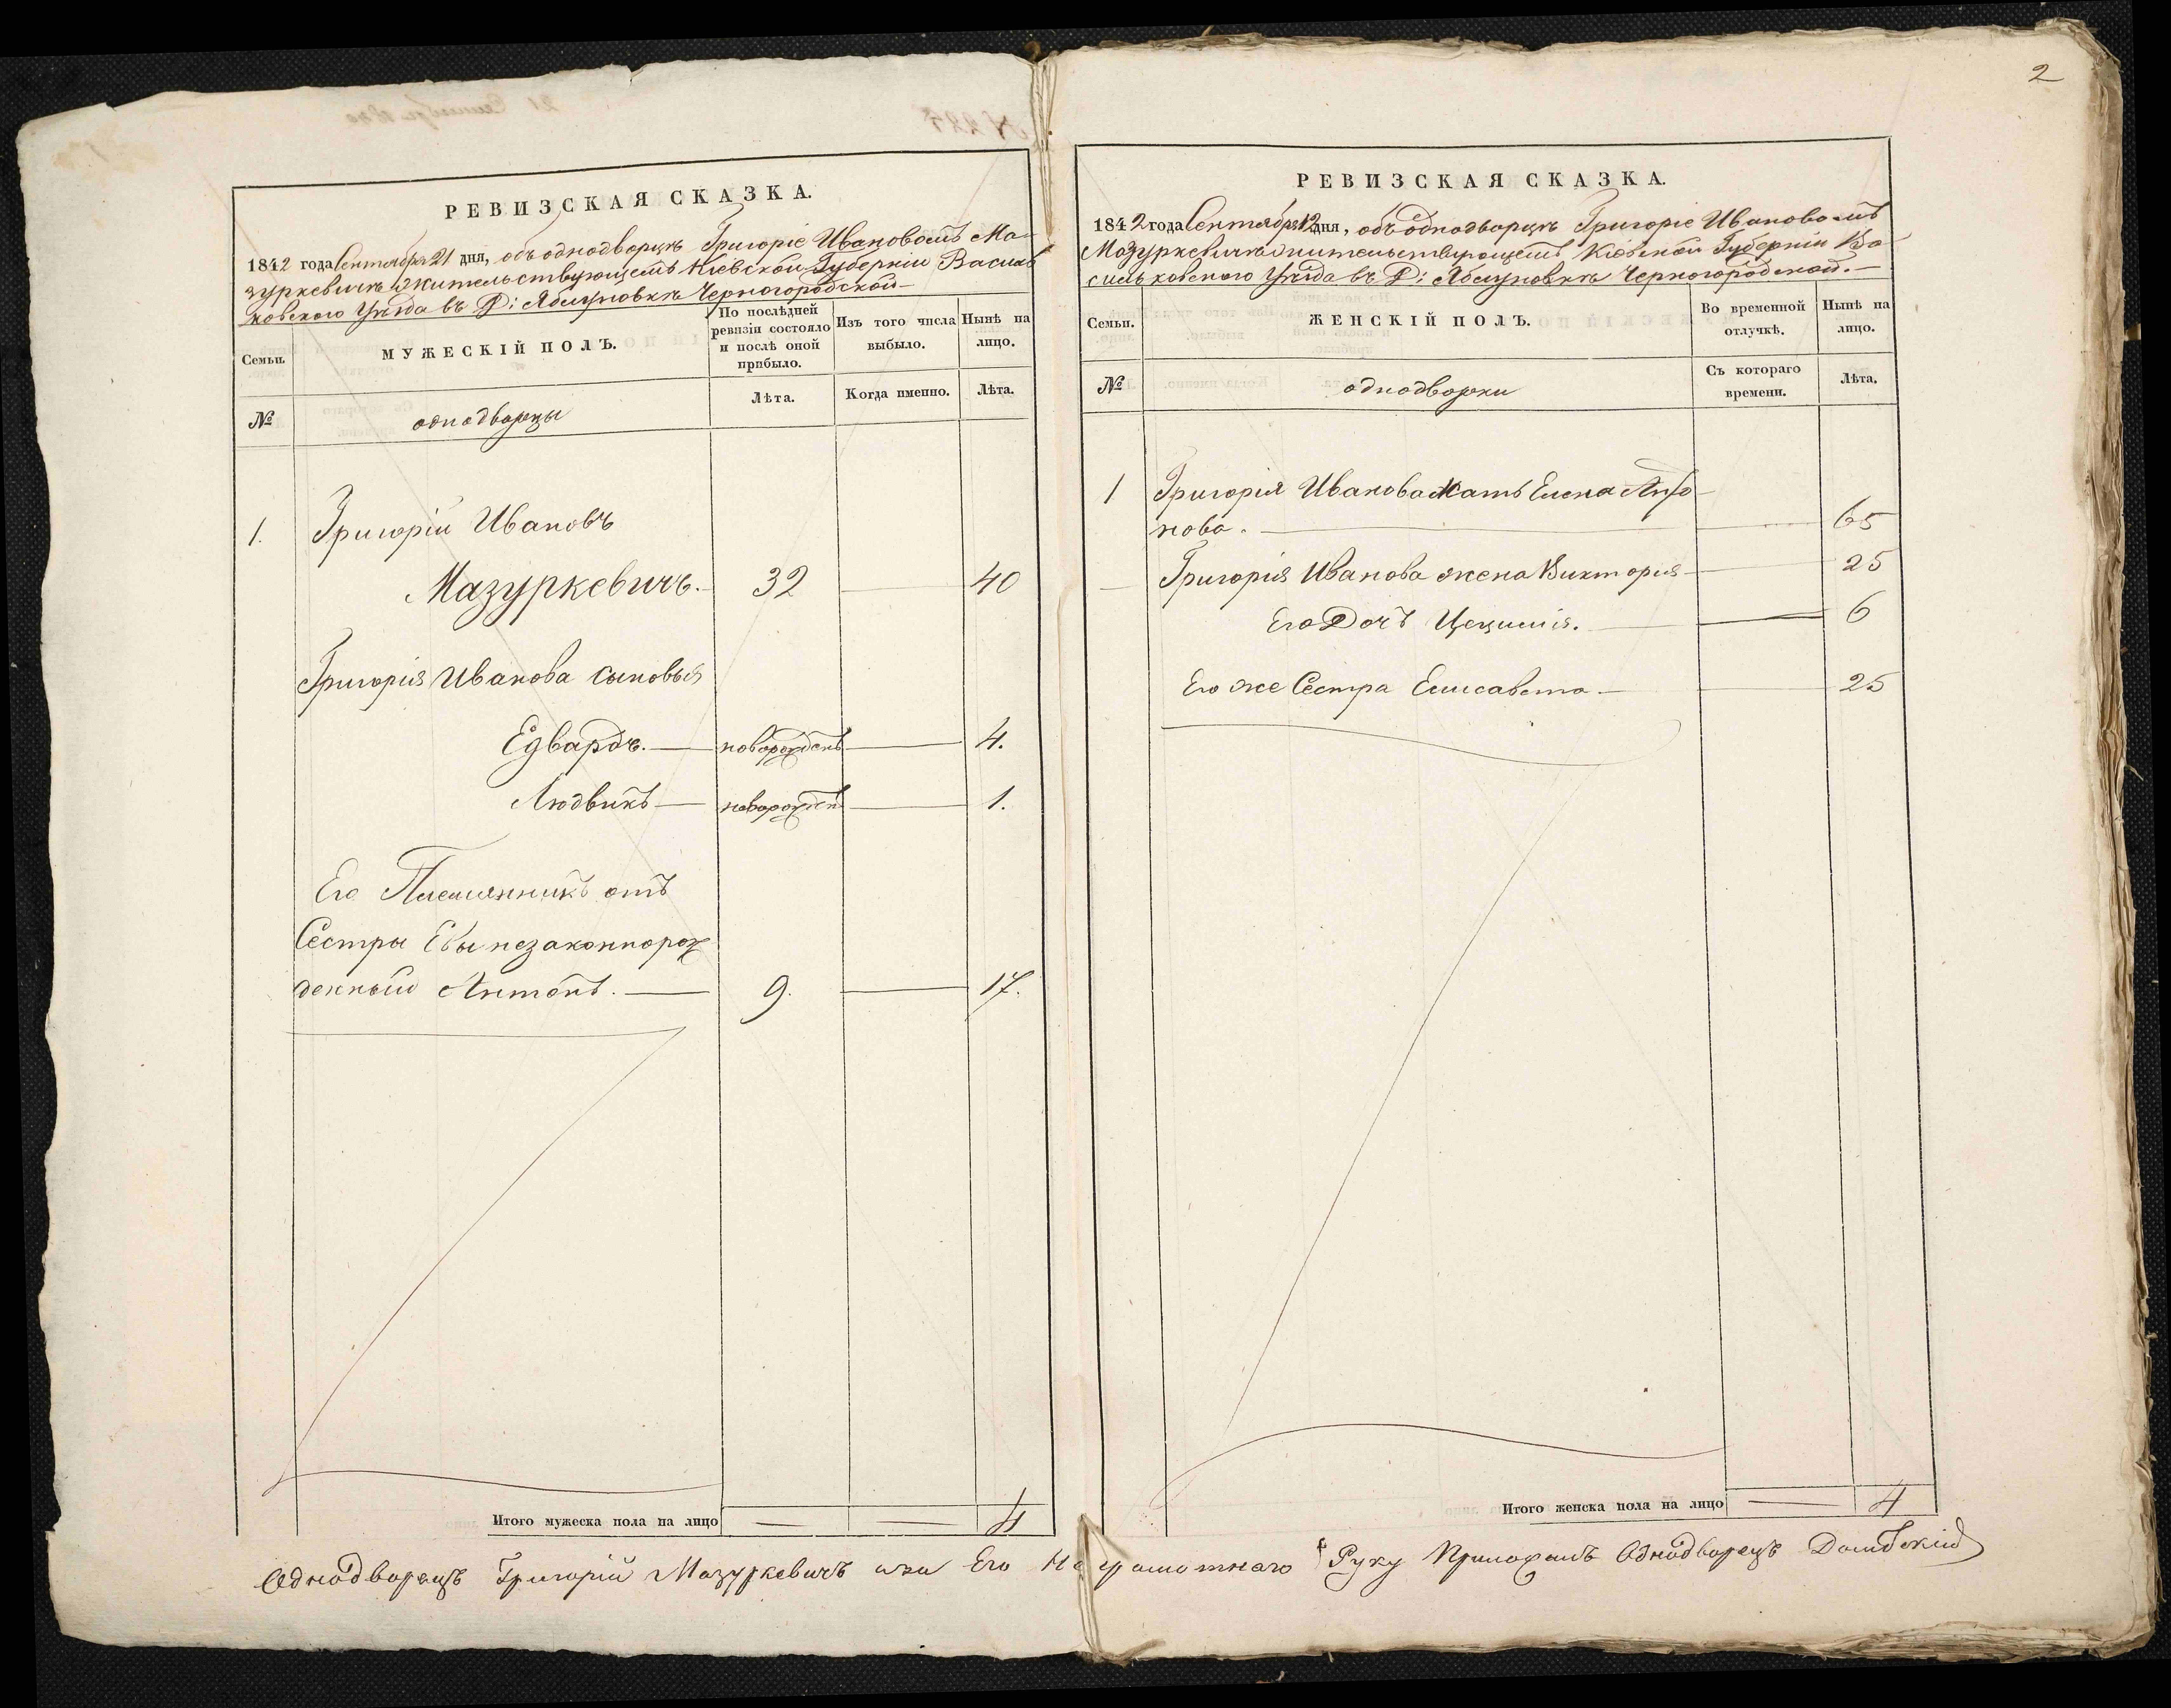 2
РЕВИЗСКАЯ СКАЗКА.
1842 года Сентября 21 дня, объ однодворцѣ Григоріе Ивановомъ Ма-
зуркевичѣ жительствующемъ Кіевской Губерніи Василь
ковского Уѣзда въ Д: Яблуновкѣ Черногородской
Семьи.
МУЖЕСКІЙ ПОЛЪ.
По послѣдней ревизіи состояло и послѣ оной прибыло.
Изъ того числа выбыло.
Нынѣ на лицо.
№
однодворцы
Лѣта.
Когда именно.
Лѣта.
1. Григорій Ивановъ
Мазуркевичъ. 32 40
Григорія Иванова сыновья
Едвардъ. новорожденъ 4.
Людвикъ новорожденъ 1.
Его Племянникъ отъ
Сестры Евы незаконнорож
денный Антонъ. 9. 17.
Итого мужеска пола на лицо — — 4
РЕВИЗСКАЯ СКАЗКА.
1842 года Сентября дня, объ однодворцѣ Григоріе Ивановомъ
Мазуркевичѣ жительствующемъ Кіевской Губерніи Ва-
сильковского Уѣзда въ Д: Яблуновкѣ Черногородской.—
Семьи.
ЖЕНСКІЙ ПОЛЪ.
Во временной отлучкѣ.
Нынѣ на лицо.
№
однодворки
Съ котораго времени.
Лѣта.
1 Григорія Иванова Мать Елена Анто-
нова. 65
Григорія Иванова жена Виктория 25
Его Дочъ Цецилія. 6
Его же Сестра Елисавета 25
Итого женска пола на лицо — 4
Однодворецъ Григорій Мазуркевичъ а за Его Неграмотнаго Руку Приложилъ Однодворецъ Домбскій